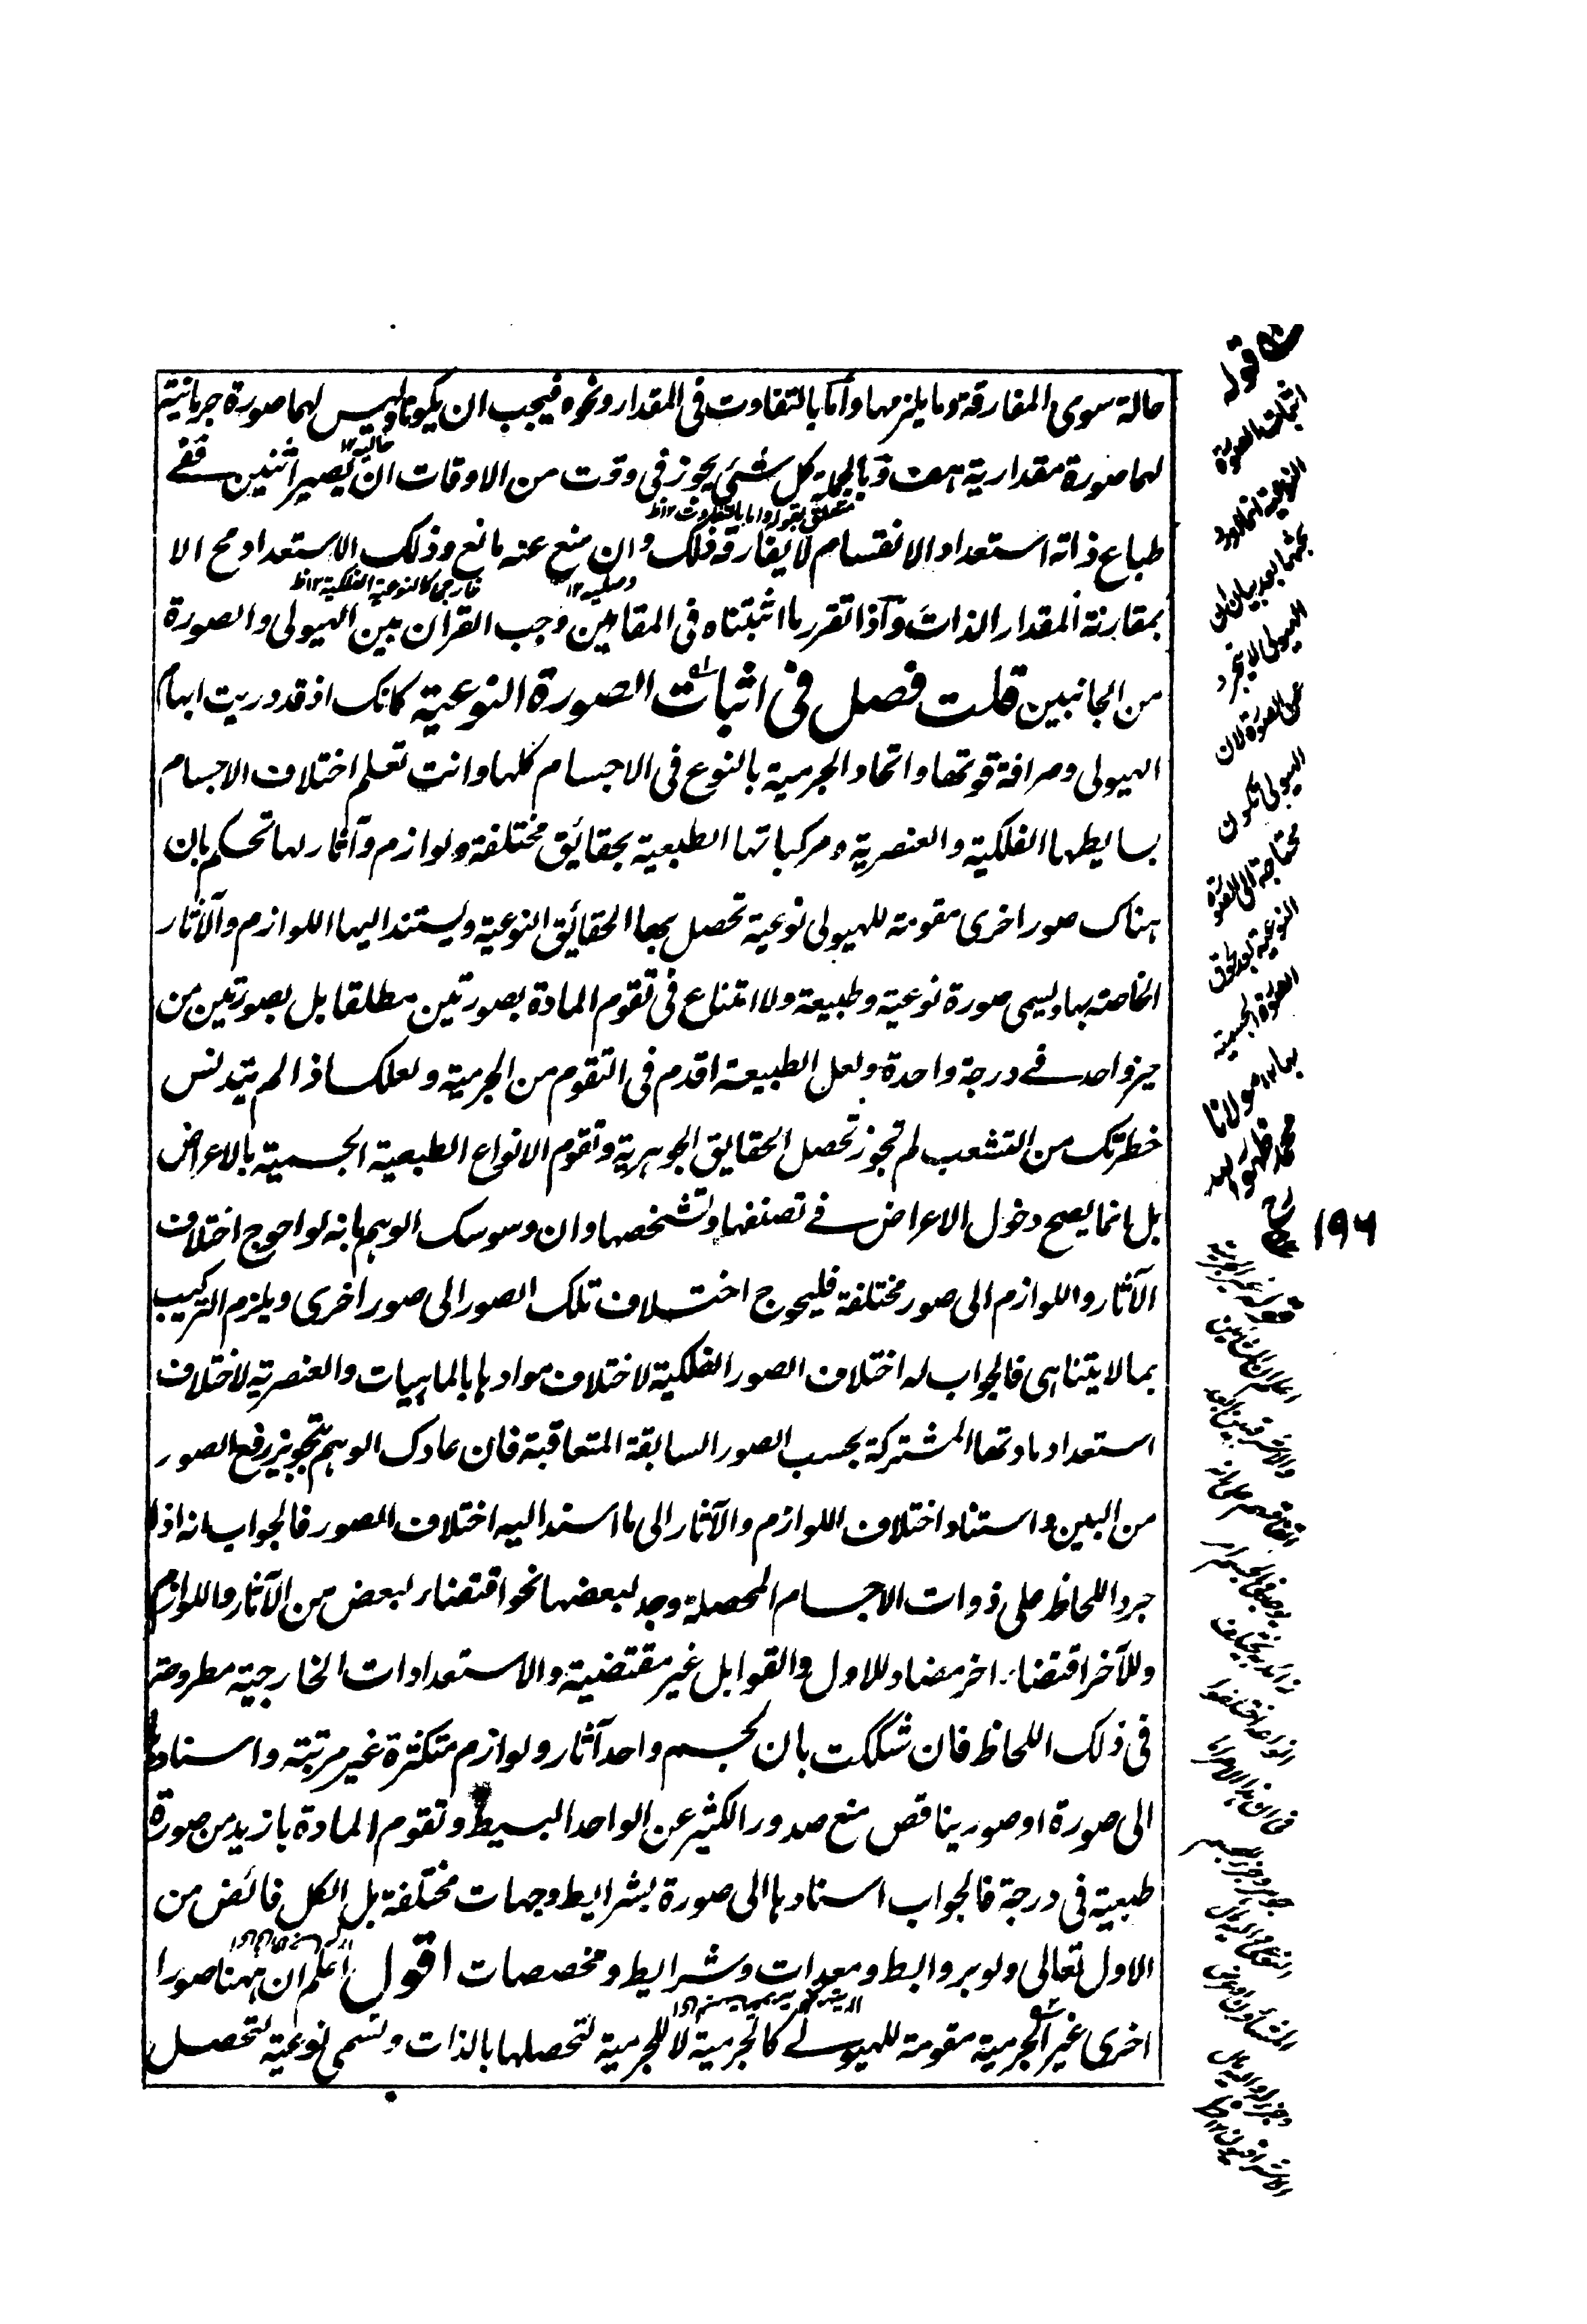 حالة سوى المفارقة وما يلزمها وأما بالتفاوت فى المقدار ونحوه فيجب ان يكونا وليس لهما صورة جرمانية
لهما صورة مقدارية هف وبالجملة كل شئ يجوز فى وقت من الاوقات ان يصير اثنين ففے
طباع ذاته استعداد الانقسام لا يفارقه ذلك وان منع عنه مانع وذلك الاستعداد مح الا
بمقارنة المقدار الذات وآذا تقرر ما اثبتناه فى المقامين وجب القران بين الهيولى والصورة
من الجانبين قلت فصل فى اثبات الصورة النوعية كانك اذ قد دريت ابهام
الهيولى وصرافة قوتها واتحاد الجرمية بالنوع فى الاجسام كلها وانت تعلم اختلاف الاجسام
بسايطها الفلكية والعنصرية ومركباتها الطبعية بحقائق مختلفة ولوازم وآثار لها تحكم بان
هناك صورا اخرى مقومة للهيولى نوعية تحصل بها الحقائق النوعية ويستند اليها اللوازم والآثار
الخاصة بها ويسمى صورة نوعية وطبيعة ولا امتناع فى تقوم المادة بصورتين مطلقا بل بصورتين من
حيز واحد فے درجة واحدة ولعل الطبيعة اقدم فى التقوم من الجرمية ولعلك اذا لم يتدنس
خطرتك من التشعب لم تجوز تحصل الحقايق الجوهرية وتقوم الانواع الطبعية الجسمية بالاعراض
بل انما يصح دخول الاعراض فے تصنفها وتشخصها وان وسوسك الوهم بانه لو احوج اختلاف
الآثار واللوازم الى صور مختلفة فليحوج اختلاف تلك الصور الى صور اخرى ويلزم التركيب
بما لا يتناهى فالجواب له اختلاف الصور الفلكية لاختلاف موادها بالماهيات والعنصرية لاختلاف
استعداد مادتها المشتركة بحسب الصور السابقة المتعاقبة فان عادك الوهم بتجويز رفع الصور
من البين واستناد اختلاف اللوازم والآثار الى ما اسند اليه اختلاف الصور فالجواب انه اذا
جرد اللحاظ على ذوات الاجسام المحصلة وجد لبعضها نحو اقتضاء لبعض من الآثار واللوازم
وللآخر اقتضاء اخر مضاد للاول والقوابل غير مقتضية والاستعدادات الخارجية مطروحة
فى ذلك اللحاظ فان شككت بان لجسم واحد آثار ولوازم متكثرة غير مرتبة واسنادها
الى صورة او صور يناقض منع صدور الكثير عن الواحد البسيط وتقوم المادة بازيد من صورة
طبعية فى درجة فالجواب اسنادها الى صورة بشرايط وجهات مختلفة بل الكل فائض من
الاول تعالى ولو بروابط ومعدات وشرايط ومخصصات اقول اعلم ان ههنا صورا
اخرى غير الجرمية مقومة للهيولے كالجرمية لا للجرمية لتحصلها بالذات وتسمى نوعية لتحصل
حالية ١٢
متعلق بقوله واما بالتفاوت ١٢ ظ
وصلية ١٢
خارجى كالنوعية الفلكية ١٢ ظ
قوله
اثبات الصورة
النوعية انما اورد
بحثها بعد بيان ان
الهيولى لا يتجرد
عن الصورة لان
الهيولى تكون
محتاجة الى الصورة
النوعية بعد لحوق
الصورة الجسمية
بها ١٢ مولانا
محمد ظهور الله
١٩٦